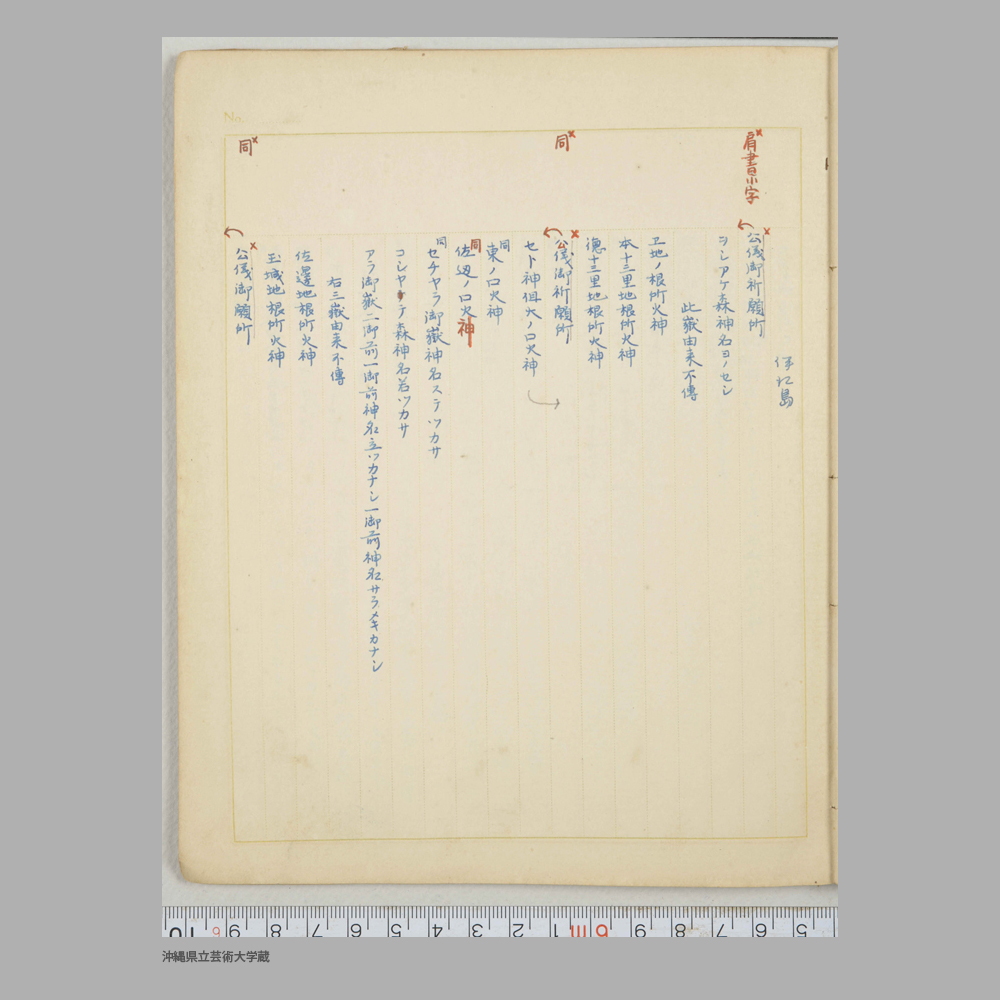 No.
肩書小字
伊江島
公儀御祈願所
ヨシアゲ森神名ヨノセシ
此嶽由来不傳
ヱ地ノ根所火神
本十三里地根所火神
徳十三里地根所火神
同
公儀御祈願所
セト神但大ノロ火神
同
東ノロ火神
同
佐辺ノロ火神
同
セチヤラ御嶽神名ステツカサ
森神名若ツカサ
アラ御嶽二御前一御前神名立ツカナシ一御前神名サラメキカナシ
右三嶽由来不傳
佐邊地根所火神
玉城地根所火神
同
公儀御願所
沖縄県立芸術大学蔵